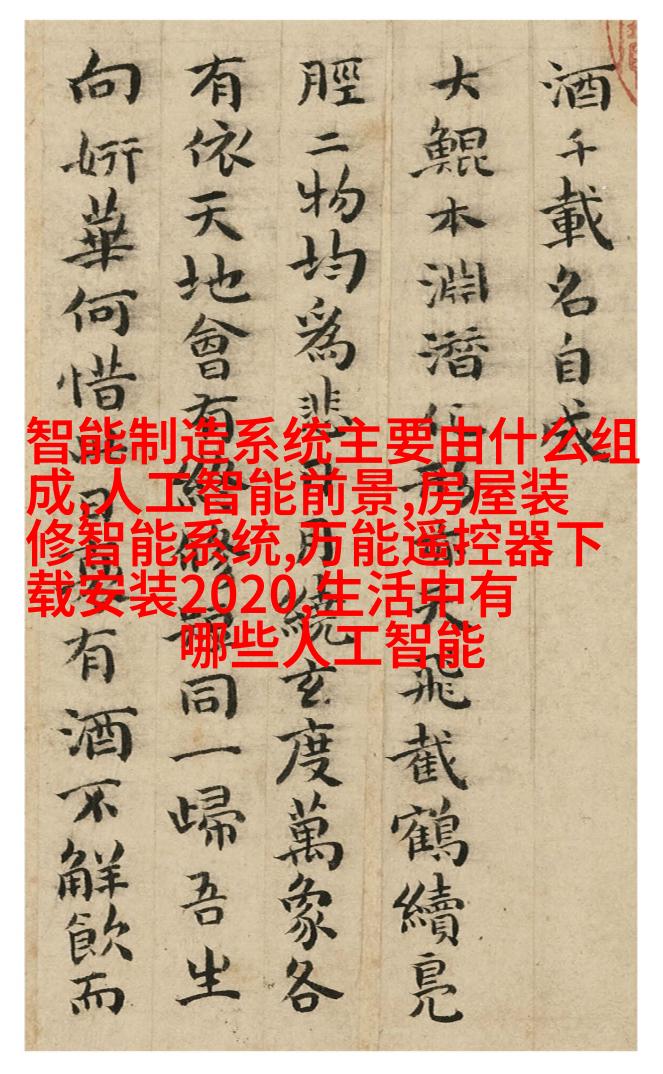 酒千載名自成
大鯤本淵潛天飛截鶴續鳧
脛二物均爲悲日月繞玄度萬象各
有依天地會有終脩短同一歸吾生
向姸華何惜有酒不觧飲而
智能制造系统主要由什么组
成,人工智能前景,房屋装
修智能系统,万能遥控器下
载安装2020,生活中有
哪些人工智能